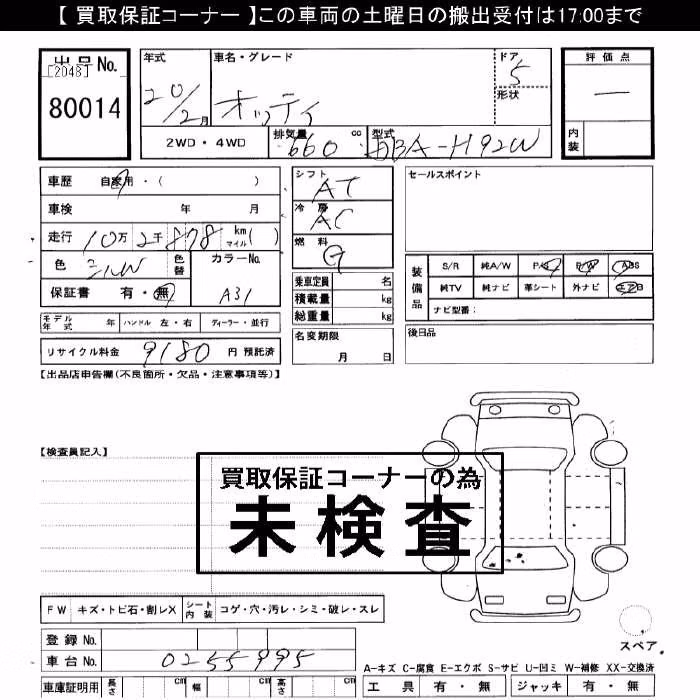 【 買取保証コーナー 】この車両の土曜日の搬出受付は17:00まで
出品 No.
[2048]
80014
年式
20/2月
車名・グレード
オッティ
ドア
5
形状
評価点
一
内装
2WD・4WD
排気量 660 cc
型式 DBA-H92W
車歴 自家用・( )
車検 年 月
走行 10万 2千 878 km マイル ( )
色 シルW 色替
カラーNo. A31
保証書 有・無
モデル年式 年 ハンドル 左・右 ディーラー・並行
リサイクル料金 9180 円 預託済
シフト AT
冷房 AC
燃料 G
乗車定員 名
積載量 kg
総重量 kg
名変期限
月 日
セールスポイント
装備品
S/R 純A/W P/S P/W ABS
純TV 純ナビ 革シート 外ナビ エアB
ナビ型番:
後日品
【出品店申告欄(不良箇所・欠品・注意事項等)】
【検査員記入】
買取保証コーナーの為
未検査
FW キズ・トビ石・割レX シート内装 コゲ・穴・汚レ・シミ・破レ・スレ
登録 No.
車台 No. 0255995
車庫証明用 長さ cm 幅 cm 高さ cm
スペア
A-キズ C-腐食 E-エクボ S-サビ U-凹ミ W-補修 XX-交換済
工具 有・無 ジャッキ 有・無